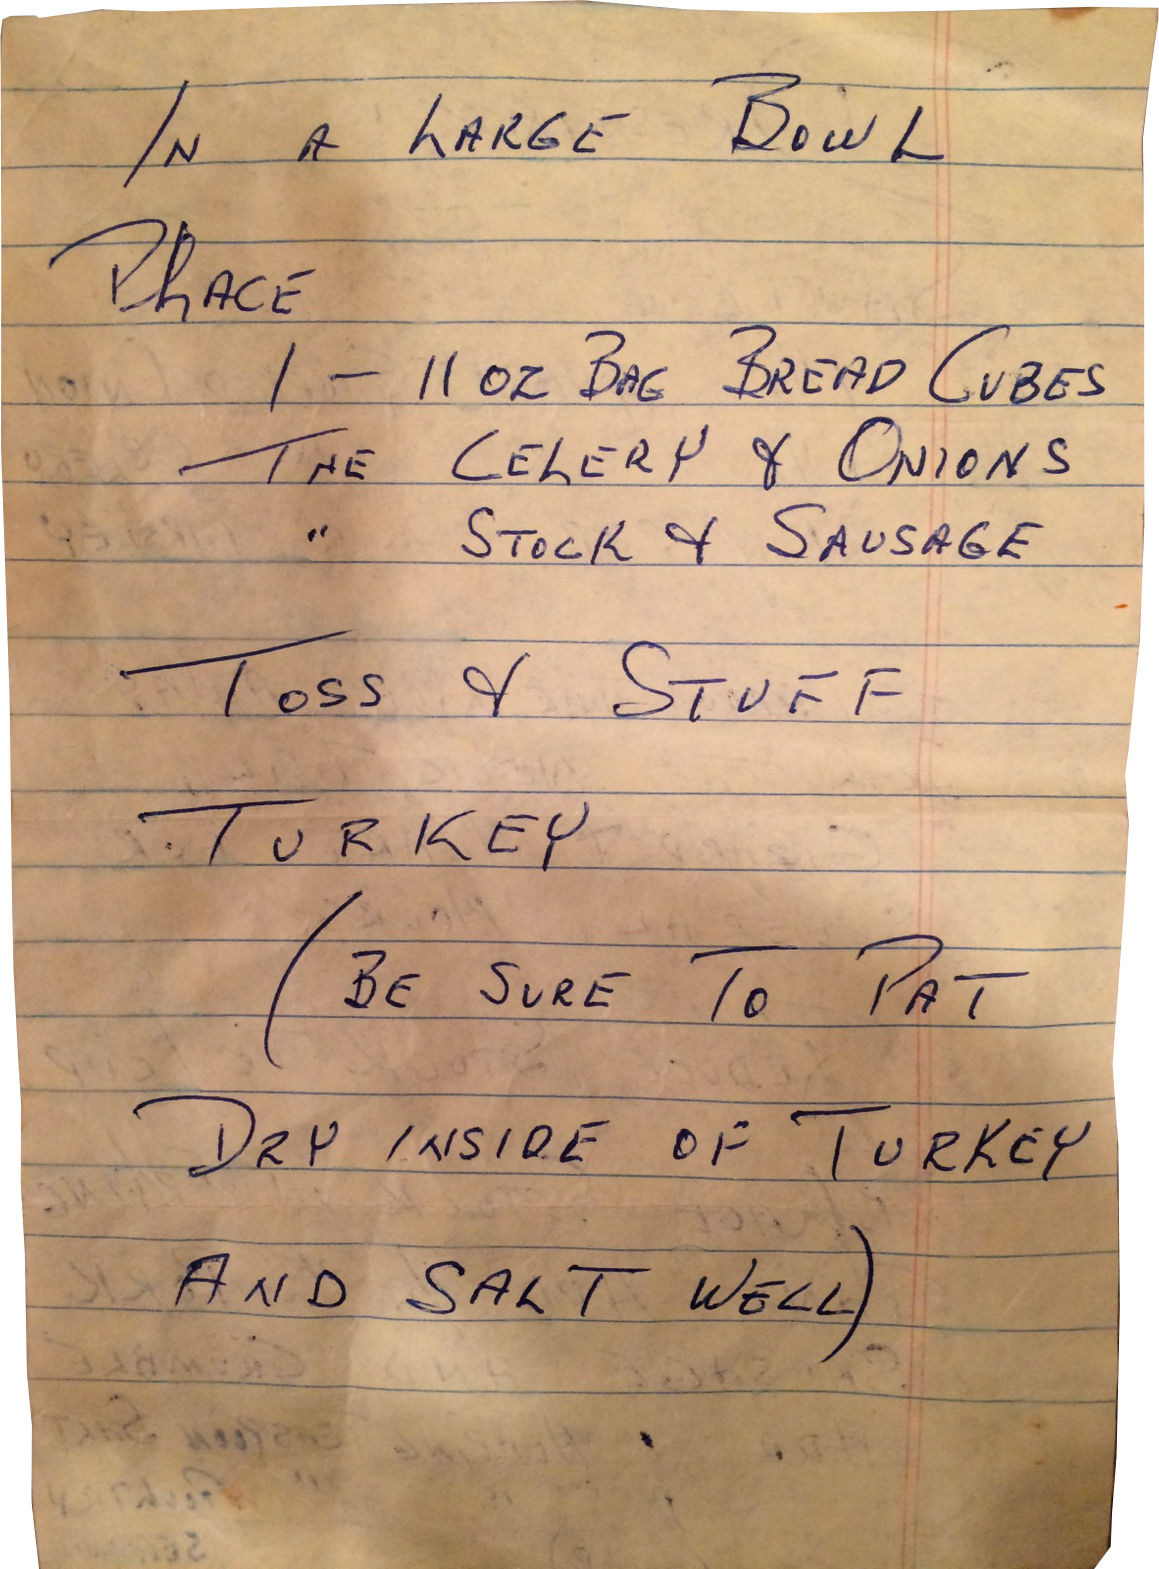 In a Large Bowl
Place
1 - 11 oz Bag Bread Cubes
The Celery & Onions
" Stock & Sausage
Toss & Stuff
Turkey
(Be sure To Pat
Dry inside of Turkey
And Salt well)